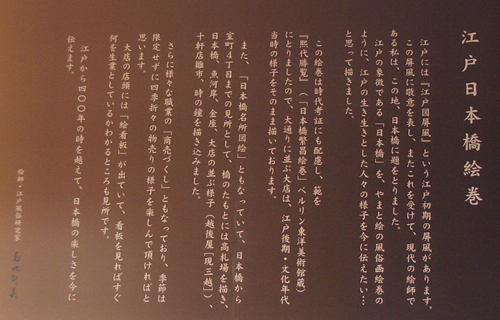 江戸日本橋絵巻
江戸には『江戸図屏風』という江戸初期の屏風があります。
この屏風に敬意を表し、またこれを受けて、現代の絵師で
ある私は、この地、日本橋に題をとりました。
江戸の象徴である「日本橋」を、やまと絵の風俗画絵巻の
ように、江戸の生き生きとした人々の様子を今に伝えたい…
と思って描きました。
この絵巻は時代考証にも配慮し、範を
『熈代勝覧』(「日本橋繁昌絵巻」ベルリン東洋美術館蔵)
にとりましたので、大通りに並ぶ大店は、江戸後期・文化年代
当時の様子をそのまま描いております。
また、「日本橋名所図絵」ともなっていて、日本橋から
室町4丁目までの見所として、橋のたもとには高札場を描き、
日本橋、魚河岸、金座、大店の並ぶ様子(越後屋[現三越])、
十軒店雛市、時の鐘を描き込みました。
さらに様々な職業の「商売づくし」ともなっており、季節は
限定せずに四季折々の物売りの様子を楽しんで頂ければと
思います。
大店の店頭には「絵看板」が出ていて、看板を見ればすぐ
何を生業としているかわかるところも見所です。
江戸から四〇〇年の時を越えて、日本橋の楽しさを今に
伝えます。
絵師・江戸風俗研究家